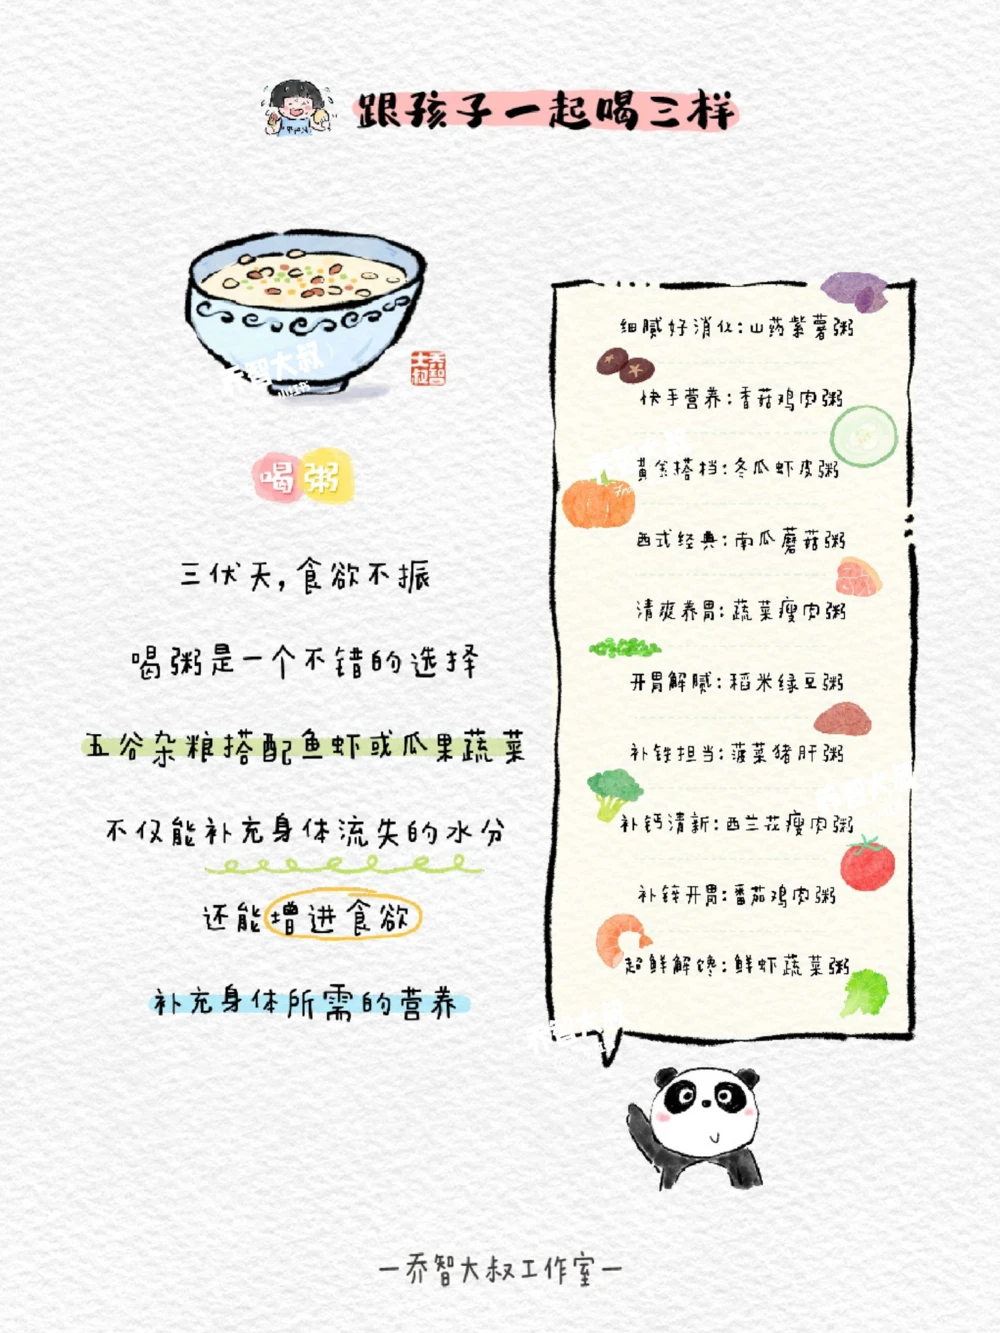 跟孩子一起喝三样
乔智大叔
乔智
大叔
喝粥
三伏天,食欲不振
喝粥是一个不错的选择
五谷杂粮搭配鱼虾或瓜果蔬菜
不仅能补充身体流失的水分
还能增进食欲
补充身体所需的营养
细腻好消化:山药紫薯粥
快手营养:香菇鸡肉粥
黄金搭档:冬瓜虾皮粥
西式经典:南瓜蘑菇粥
清爽养胃:蔬菜瘦肉粥
开胃解腻:稻米绿豆粥
补铁担当:菠菜猪肝粥
乔智大叔
补钙清新:西兰花瘦肉粥
补锌开胃:番茄鸡肉粥
超鲜解馋:鲜虾蔬菜粥
乔智大叔
—乔智大叔工作室—